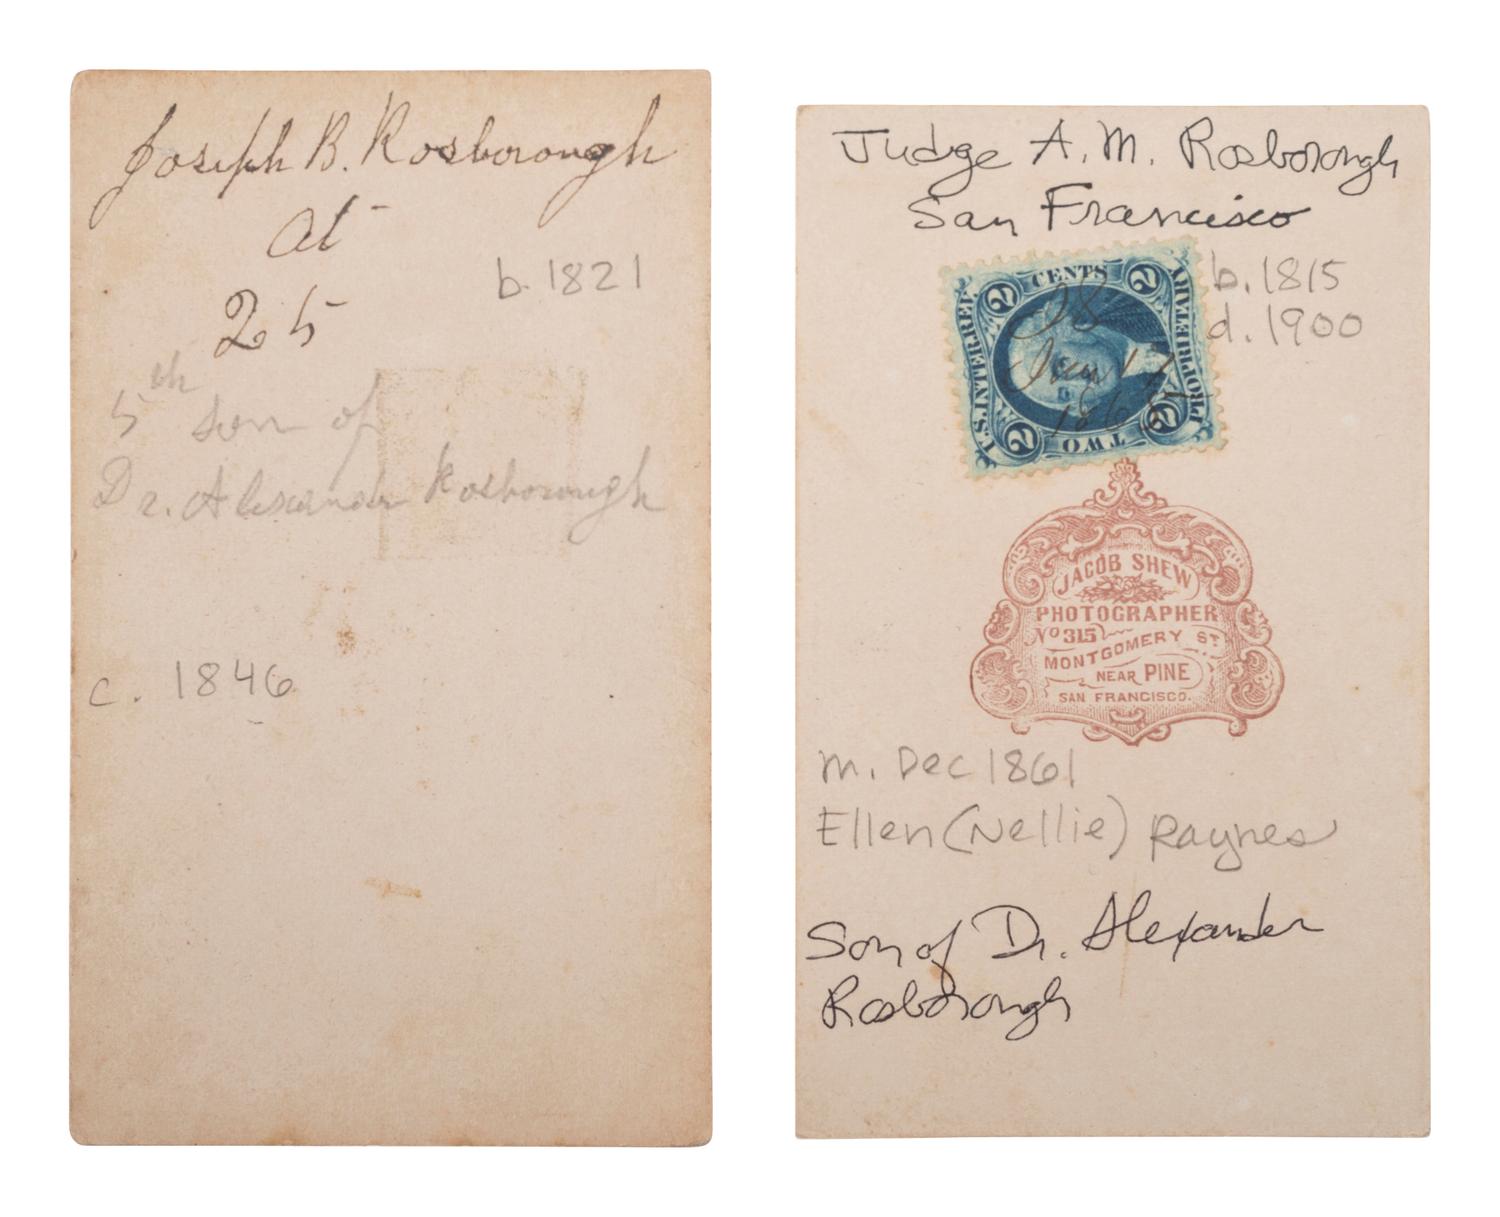 Joseph B. Rosborough
At
25
b. 1821
5th son of
Dr. Alexander Rosborough
c. 1846
Judge A. M. Rosborough
San Francisco
b. 1815
d. 1900
U.S. INTER. REV.
CENTS
PROPRIETARY
TWO
2 2 2 2
Jan 17
186
JACOB SHEW
PHOTOGRAPHER
No 315
MONTGOMERY ST
NEAR PINE
SAN FRANCISCO.
m. Dec 1861
Ellen (Nellie) Raynes
Son of Dr. Alexander
Rosborough